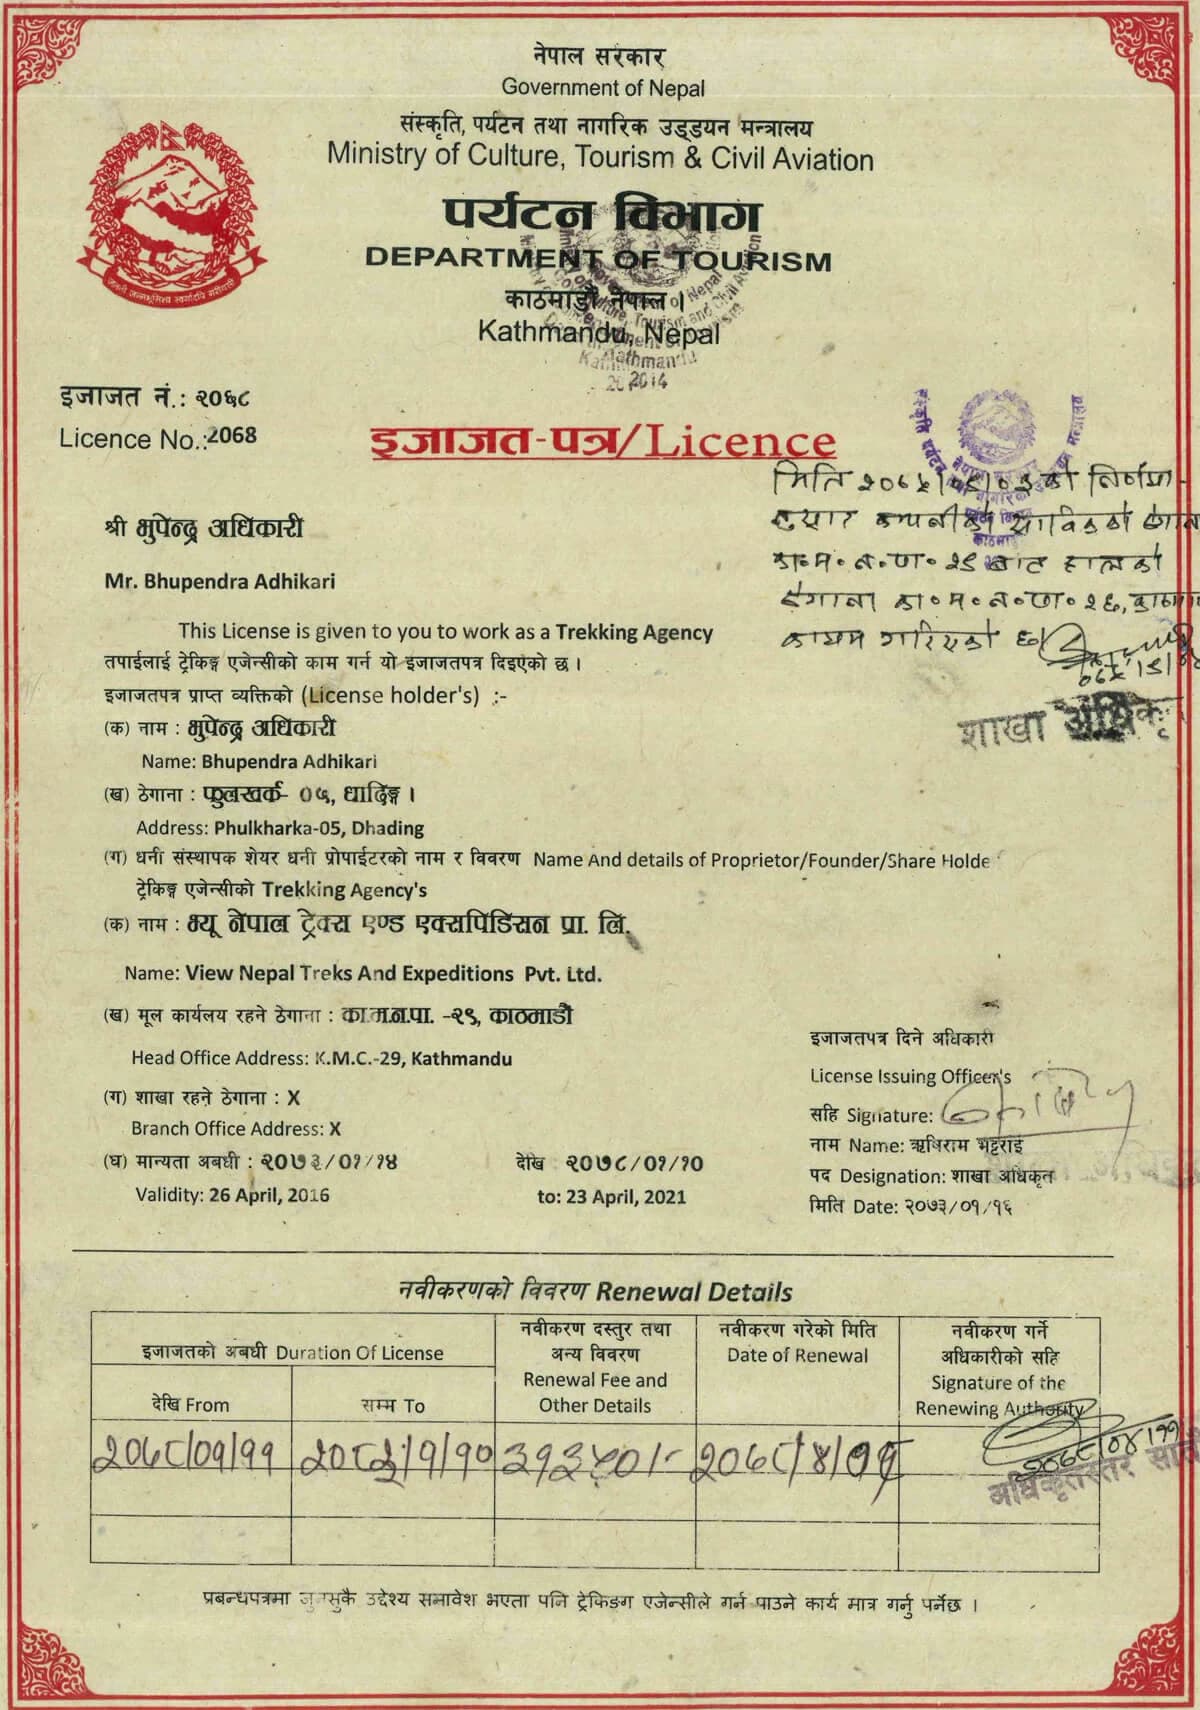 नेपाल सरकार
Government of Nepal
संस्कृति, पर्यटन तथा नागरिक उड्डयन मन्त्रालय
Ministry of Culture, Tourism & Civil Aviation
पर्यटन विभाग
DEPARTMENT OF TOURISM
काठमाडौं नेपाल ।
Kathmandu, Nepal
2014
इजाजत नं.: २०६८
Licence No.: 2068
इजाजत-पत्र/Licence
श्री भुपेन्द्र अधिकारी
Mr. Bhupendra Adhikari
This License is given to you to work as a Trekking Agency
तपाईलाई ट्रेकिङ्ग एजेन्सीको काम गर्न यो इजाजतपत्र दिइएको छ ।
इजाजतपत्र प्राप्त व्यक्तिको (License holder's) :-
(क) नाम : भुपेन्द्र अधिकारी
Name: Bhupendra Adhikari
(ख) ठेगाना : फुलखर्क- ०५, धादिङ्ग ।
Address: Phulkharka-05, Dhading
(ग) धनी संस्थापक शेयर धनी प्रोपाईटरको नाम र विवरण Name And details of Proprietor/Founder/Share Holde
ट्रेकिङ्ग एजेन्सीको Trekking Agency's
(क) नाम : भ्यू नेपाल ट्रेक्स एण्ड एक्सपिडिसन प्रा. लि.
Name: View Nepal Treks And Expeditions Pvt. Ltd.
(ख) मूल कार्यलय रहने ठेगाना : का.म.न.पा. -२९, काठमाडौं
Head Office Address: K.M.C.-29, Kathmandu
(ग) शाखा रहने ठेगाना : X
Branch Office Address: X
(घ) मान्यता अबधी : २०७३/०१/१४ देखि २०७८/०१/१०
Validity: 26 April, 2016 to: 23 April, 2021
शाखा अधिकृ
इजाजतपत्र दिने अधिकारी
License Issuing Officer's
सहि Signature:
नाम Name: ऋषिराम भट्टराई
पद Designation: शाखा अधिकृत
मिति Date: २०७३/०१/१६
नवीकरणको विवरण Renewal Details
इजाजतको अबधी Duration Of License
देखि From
सम्म To
नवीकरण दस्तुर तथा
अन्य विवरण
Renewal Fee and
Other Details
नवीकरण गरेको मिति
Date of Renewal
नवीकरण गर्ने
अधिकारीको सहि
Signature of the
Renewing Authority
२०७८/०१/११
प्रबन्धपत्रमा जुनसुकै उद्देश्य समावेश भएता पनि ट्रेकिङग एजेन्सीले गर्न पाउने कार्य मात्र गर्नु पर्नेछ ।